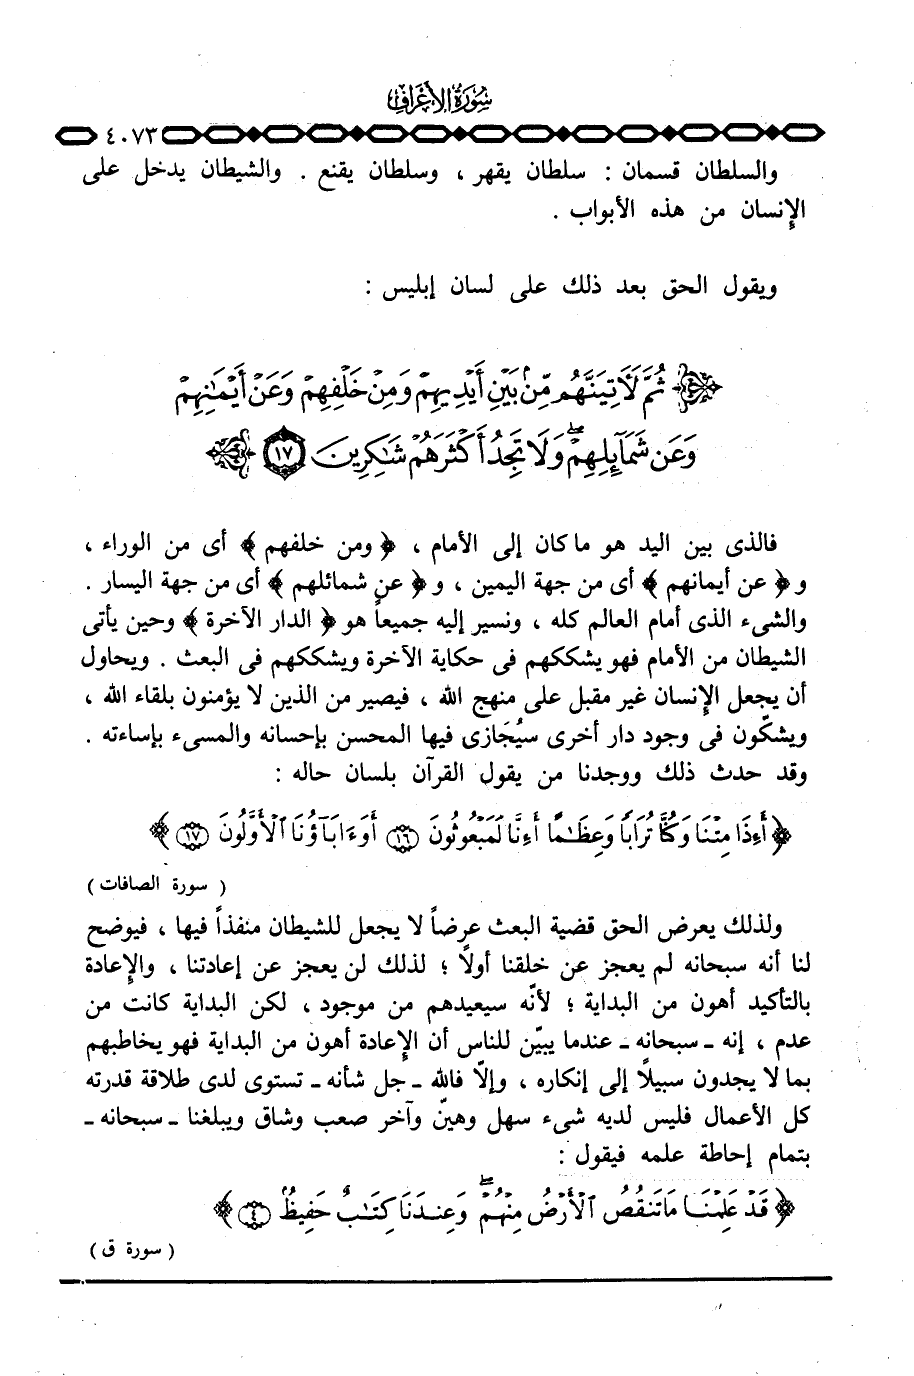 سورة الأعراف
٤٠٧٣
والسلطان قسمان : سلطان يقهر ، وسلطان يقنع . والشيطان يدخل على
الإنسان من هذه الأبواب .
ويقول الحق بعد ذلك على لسان إبليس :
ثُمَّ لَآتِيَنَّهُم مِّنۢ بَيْنِ أَيْدِيهِمْ وَمِنْ خَلْفِهِمْ وَعَنْ أَيْمَٰنِهِمْ
وَعَن شَمَآئِلِهِمْ ۖ وَلَا تَجِدُ أَكْثَرَهُمْ شَٰكِرِينَ ١٧
فالذى بين اليد هو ما كان إلى الأمام ، ﴿ ومن خلفهم ﴾ أى من الوراء ،
و ﴿ عن أيمانهم ﴾ أى من جهة اليمين ، و ﴿ عن شمائلهم ﴾ أى من جهة اليسار .
والشىء الذى أمام العالم كله ، ونسير إليه جميعاً هو ﴿ الدار الآخرة ﴾ وحين يأتى
الشيطان من الأمام فهو يشككهم فى حكاية الآخرة ويشككهم فى البعث . ويحاول
أن يجعل الإنسان غير مقبل على منهج الله ، فيصير من الذين لا يؤمنون بلقاء الله ،
ويشكّون فى وجود دار أخرى سيُجَازى فيها المحسن بإحسانه والمسىء بإساءته .
وقد حدث ذلك ووجدنا من يقول القرآن بلسان حاله :
﴿ أَءِذَا مِتْنَا وَكُنَّا تُرَابًا وَعِظَٰمًا أَءِنَّا لَمَبْعُوثُونَ ١٦ أَوَءَابَآؤُنَا ٱلْأَوَّلُونَ ١٧ ﴾
( سورة الصافات )
ولذلك يعرض الحق قضية البعث عرضاً لا يجعل للشيطان منفذاً فيها ، فيوضح
لنا أنه سبحانه لم يعجز عن خلقنا أولاً ؛ لذلك لن يعجز عن إعادتنا ، والإعادة
بالتأكيد أهون من البداية ؛ لأنّه سيعيدهم من موجود ، لكن البداية كانت من
عدم ، إنه ـ سبحانه ـ عندما يبيّن للناس أن الإعادة أهون من البداية فهو يخاطبهم
بما لا يجدون سبيلاً إلى إنكاره ، وإلّا فالله ـ جل شأنه ـ تستوى لدى طلاقة قدرته
كل الأعمال فليس لديه شىء سهل وهينّ وآخر صعب وشاق ويبلغنا ـ سبحانه ـ
بتمام إحاطة علمه فيقول :
﴿ قَدْ عَلِمْنَا مَا تَنقُصُ ٱلْأَرْضُ مِنْهُمْ ۖ وَعِندَنَا كِتَٰبٌ حَفِيظٌۢ ٤ ﴾
( سورة ق )